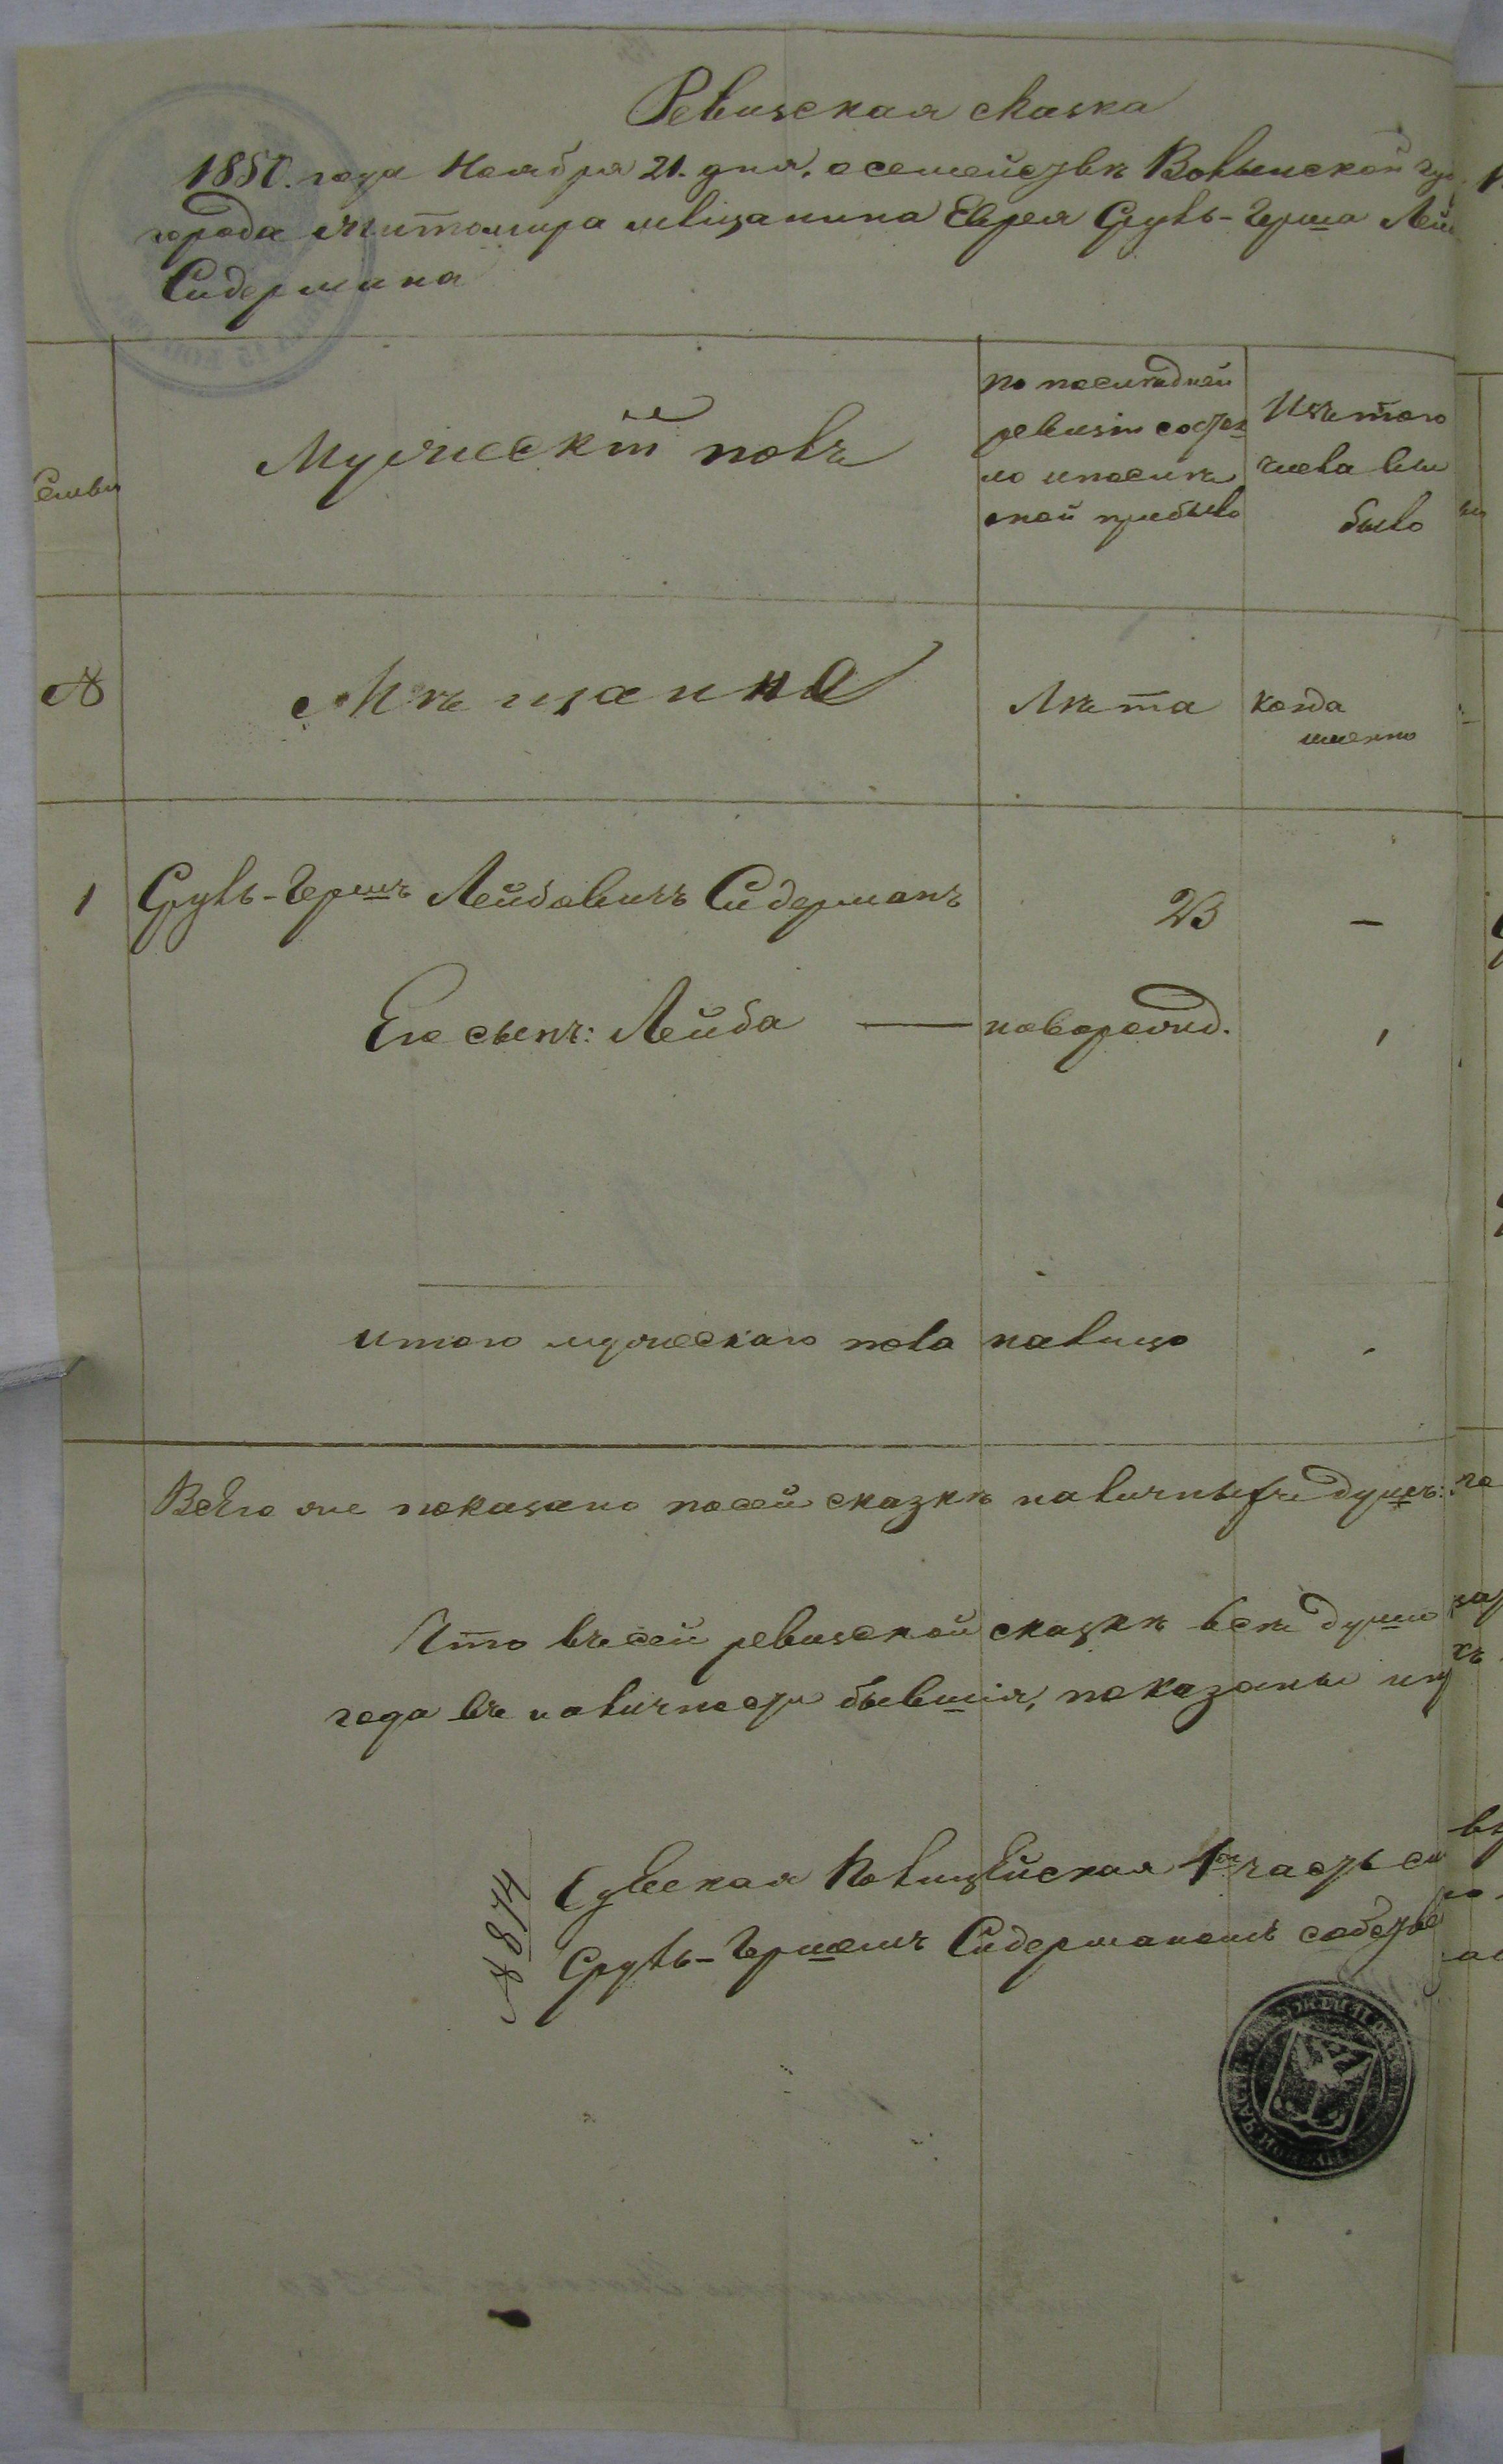 Ревизская сказка
1850. года Ноября 21. дня, о семействѣ Волынской гу
города Житомира мѣщанина Еврея Сруль-Герша Лей
Сидермана
Семьи
Мужескій полъ
по последней
ревизіи состоя
ло и после
оной прибыло
Изъ того
числа вы
было
№
Мѣщанѣ
Лѣта
когда
именно
1 Сруль-Гершъ Лейбовичъ Сидерманъ 23 —
Его сынъ: Лейба — новорожд.
итого мужескаго пола налицо
Всего же показано по сей сказкѣ наличныхъ душъ:
Что въ сей ревизской сказкѣ всѣ души
года въ наличности бывшія, показаны
№ 874
Сквская Полицейская 1я часть
Сруль-Гершомъ Сидерманомъ собств